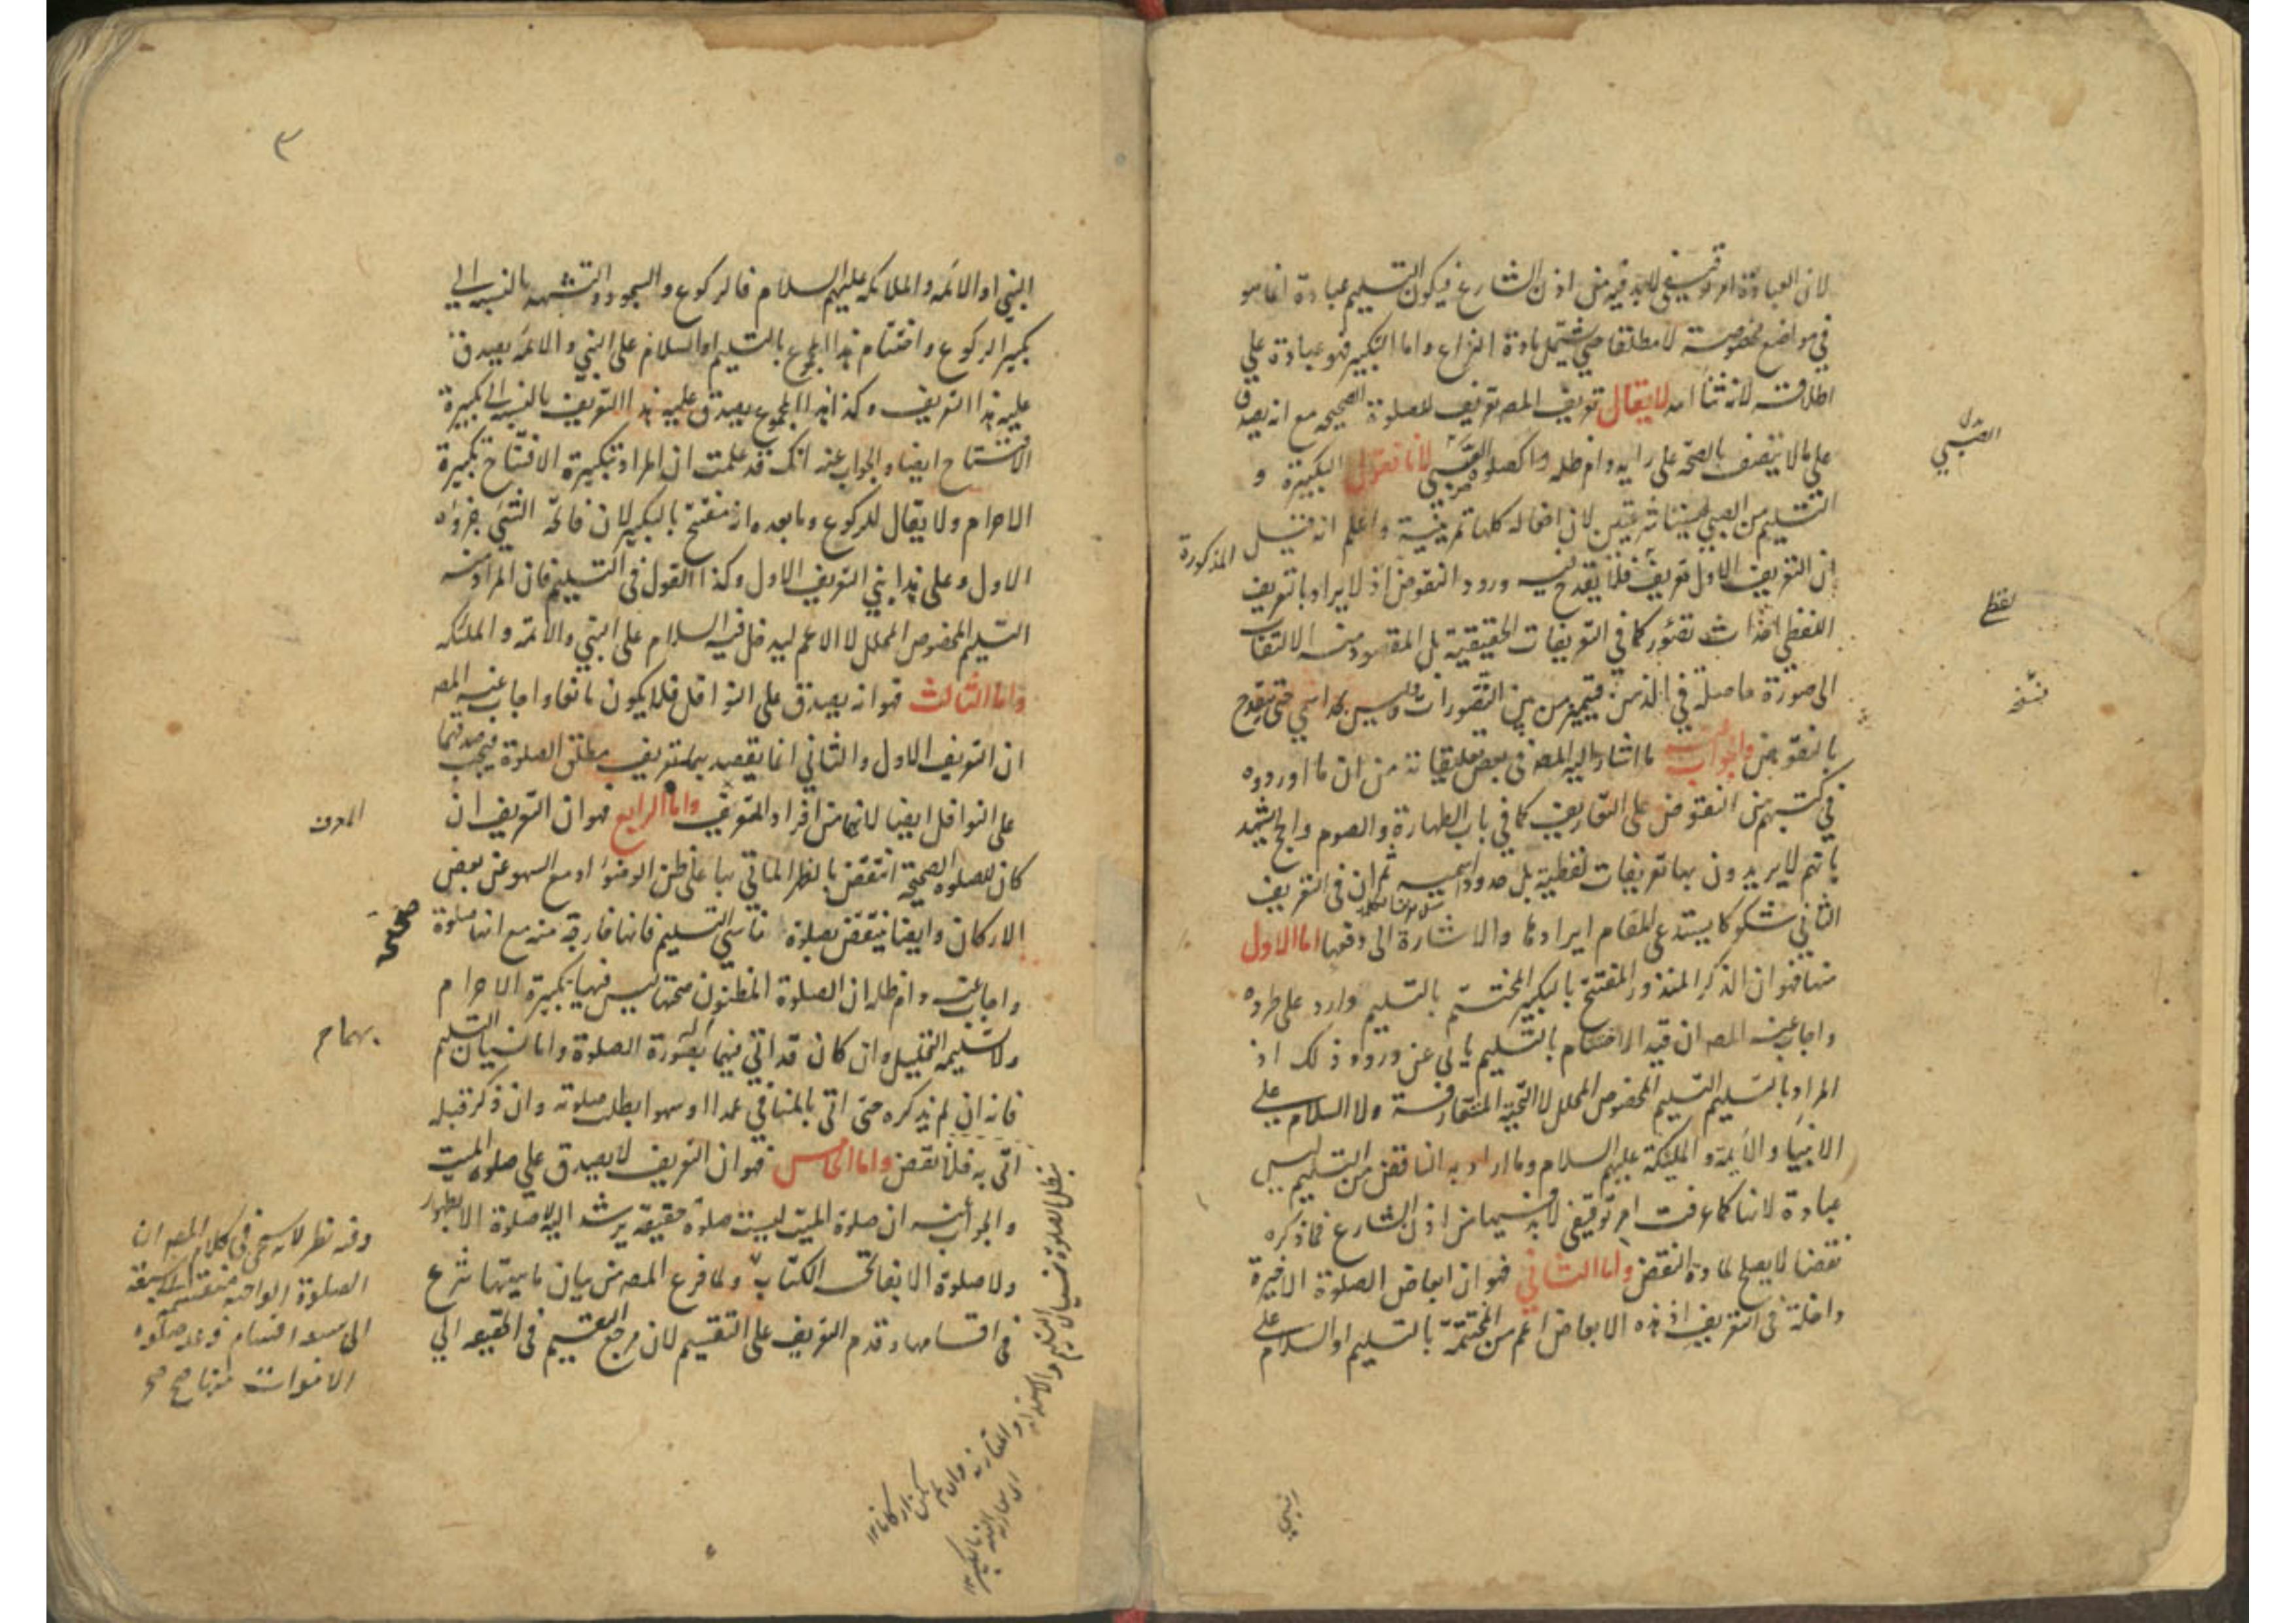 لان العبادة امر توقيفي لابد فيه من اذن الشارع فيكون التسليم عبادة انما هو
في مواضع مخصوصة لا مطلقا حتى يشتمل مادة النزاع واما التكبير فهو عبادة على
اطلاقه لانه ثناء لا يقال تعريف المص تعريف للصلوة الصحيحة مع انه يصدق
على ما لا يتصف بالصحة على رايه دام ظله كصلوة الصبي لانا نقول التكبيرة و
التسليم من الصبي ليستا شرعيتين لان افعاله كلها تمرينية واعلم انه قيل
المذكورة
ان التعريف الاول تعريف فلا يقدح فيه ورود النقوض اذ لا يراد بالتعريف
اللفظي احداث تصور كما في التعريفات الحقيقية بل المقصود منه الالتفات
الى صورة حاصلة في الذهن فيتميز من بين التصورات وليس بحد اسمي حتى يقدح
بالنقوض والجواب ما اشار اليه المص في بعض تعليقاته من ان ما اوردوه
في كتبهم من النقوض على التعاريف كما في باب الطهارة والصوم والحج يشهد
بانهم لا يريدون بها تعريفات لفظية بل حدودا اسمية ثم ان في التعريف
الثاني شكوكا يستدعي المقام ايرادها والاشارة الى دفعها اما الاول
منها فهو ان الذكر المنذور المفتتح بالتكبير المختتم بالتسليم وارد على طرده
واجاب عنه المص ان قيد الاختتام بالتسليم يابى عن ورود ذلك اذ
المراد بالتسليم التسليم المخصوص المحلل لا التحية المتعارفة ولا السلام على
الانبياء والائمة والملئكة عليهم السلام وما اراد به الناقض من التسليم ليس
عبادة لانها كما عرفت امر توقيفي لابد فيها من اذن الشارع فما ذكره
نقضا لا يصلح لمادة النقض واما الثاني فهو ان ابعاض الصلوة الاخيرة
داخلة في التعريف اذ هذه الابعاض اعم من المختتمة بالتسليم او السلام على
الصبي
لفظي
نسخه
٣
النبي او الائمة والملائكة عليهم السلام فالركوع والسجود والتشهد بالنسبة الى
تكبير الركوع واختتام هذا المجموع بالتسليم او السلام على النبي والائمة يصدق
عليه هذا التعريف وكذا هذا المجموع يصدق عليه هذا التعريف بالنسبة الى تكبيرة
الافتتاح ايضا والجواب عنه انك قد علمت ان المراد بتكبيرة الافتتاح تكبيرة
الاحرام ولا يقال للركوع وما بعده انه مفتتح بالتكبير لان فاتحة الشئ جزؤه
الاول وعلى هذا بني التعريف الاول وكذا القول في التسليم فان المراد منه
التسليم المخصوص المحلل لا الاعم ليدخل فيه السلام على النبي والائمة والملئكه
واما الثالث فهو انه يصدق على النوافل فلا يكون مانعا واجاب عنه المص
ان التعريف الاول والثاني انما يقصد بهما تعريف مطلق الصلوة فيجب صدقهما
على النوافل ايضا لانها من افراد المعرف واما الرابع فهو ان التعريف ان
كان للصلوة الصحيحة انتقض بالظهر الماتي بها على ظن الوضوء او مع السهو عن بعض
الاركان وايضا ينتقض بصلوة ناسي التسليم فانها خارجة منه مع انها صلوة
واجاب عنه دام ظله ان الصلوة المظنون صحتها ليس فيها تكبيرة الاحرام
ولا تسليمه التحليل وان كان قد اتي فيها بصورة الصلوة واما نسيان التسليم
فانه ان لم يذكره حتى اتى بالمنافي عمدا او سهوا بطلت صلوته وان ذكر قبله
اتى به فلا نقض واما الخامس فهو ان التعريف لا يصدق على صلوة الميت
والجواب عنه ان صلوة الميت ليست صلوة حقيقة يرشد اليه لا صلوة الا بطهور
ولا صلوة الا بفاتحة الكتاب ولما فرغ المص من بيان ماهيتها شرع
في اقسامها وقدم التعريف على التقسيم لان مرجع التقسيم في الحقيقة الى
المعرف
صحيحة
بهما م
وفيه نظر لانه سيجئ في كلام المص ان
الصلوة الواجبة منقسمة
الى اقسام وعد صلوة
الاموات منها صح